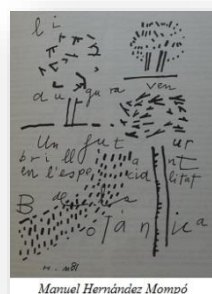 li
au gu ra ven
Un fut ur
bri ll a nt
en l'espe cia litat
de la
B o tànica
Manuel Hernández Mompó